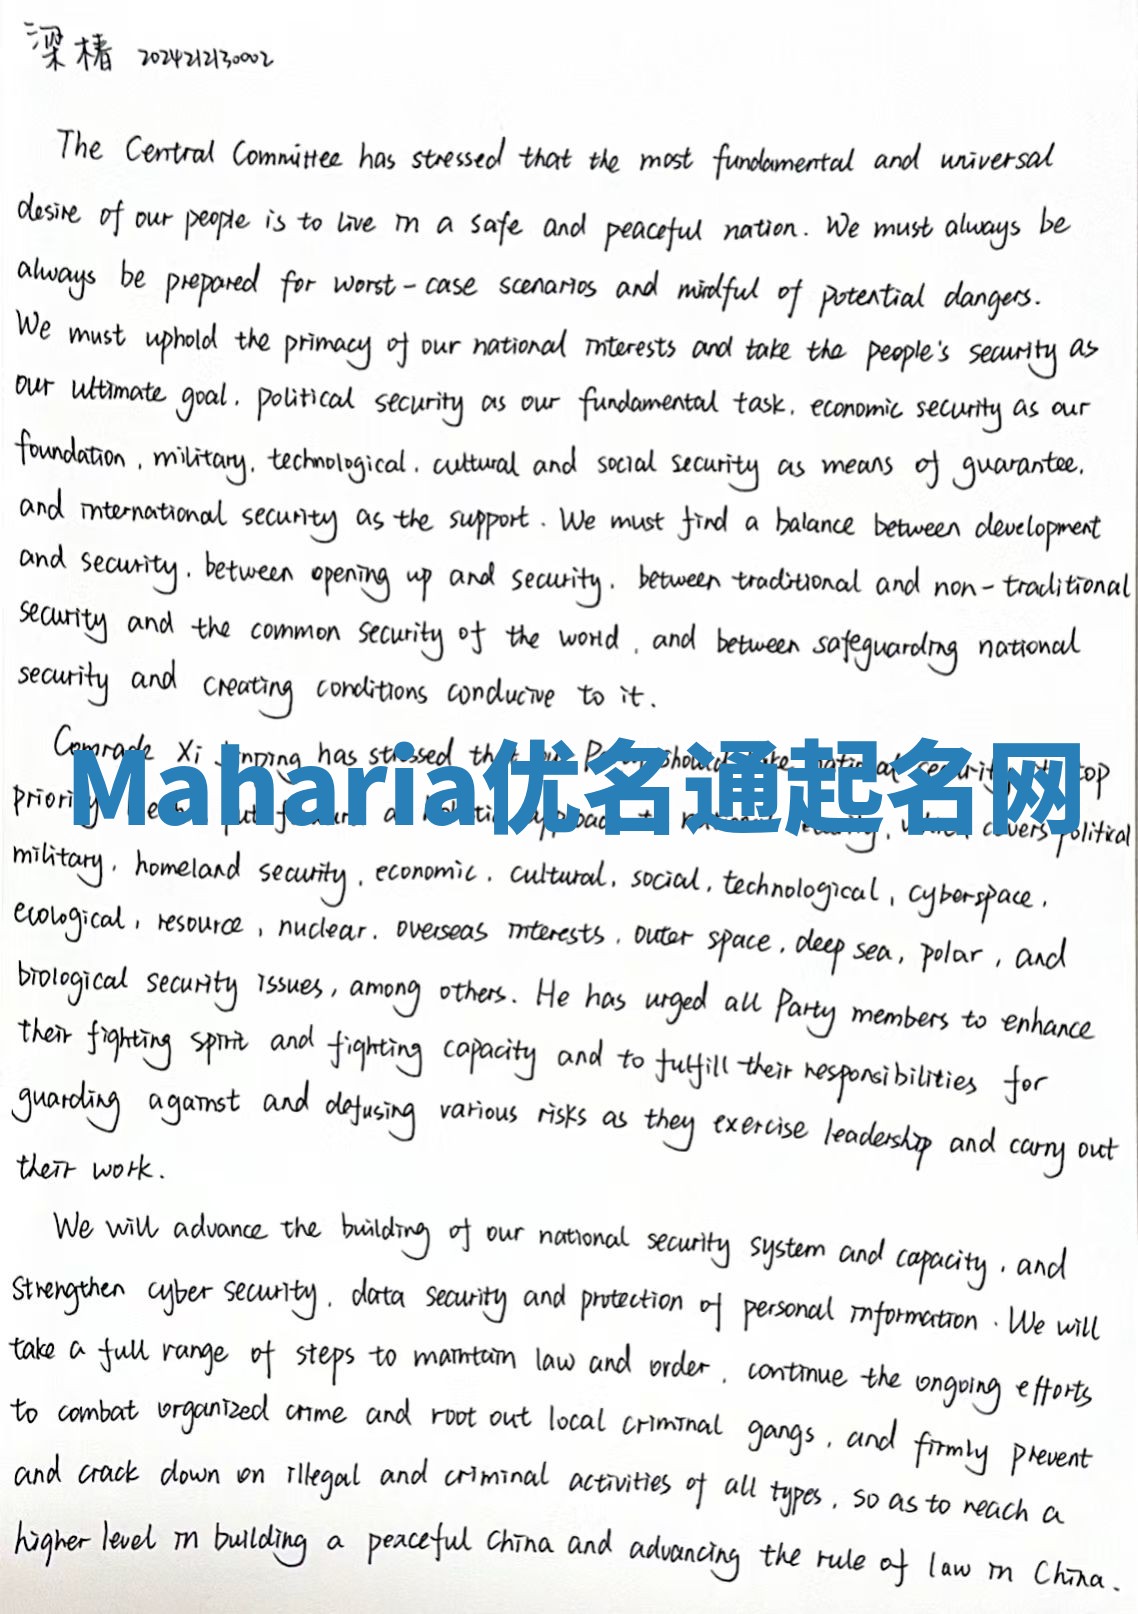 梁椿 2024212130002
The Central Committee has stressed that the most fundamental and universal
desire of our people is to live in a safe and peaceful nation. We must always be
always be prepared for worst-case scenarios and mindful of potential dangers.
We must uphold the primacy of our national interests and take the people's security as
our ultimate goal, political security as our fundamental task, economic security as our
foundation, military, technological, cultural and social security as means of guarantee,
and international security as the support. We must find a balance between development
and security, between opening up and security, between traditional and non-traditional
security and the common security of the world, and between safeguarding national
security and creating conditions conducive to it.
Comrade Xi Jinping has stressed should security top
Maharia优名通起名网
priority covers political
military, homeland security, economic, cultural, social, technological, cyberspace,
ecological, resource, nuclear, overseas interests, outer space, deep sea, polar, and
biological security issues, among others. He has urged all Party members to enhance
their fighting spirit and fighting capacity and to fulfill their responsibilities for
guarding against and defusing various risks as they exercise leadership and carry out
their work.
We will advance the building of our national security system and capacity, and
strengthen cyber security, data security and protection of personal information. We will
take a full range of steps to maintain law and order, continue the ongoing efforts
to combat organized crime and root out local criminal gangs, and firmly prevent
and crack down on illegal and criminal activities of all types, so as to reach a
higher level in building a peaceful China and advancing the rule of law in China.